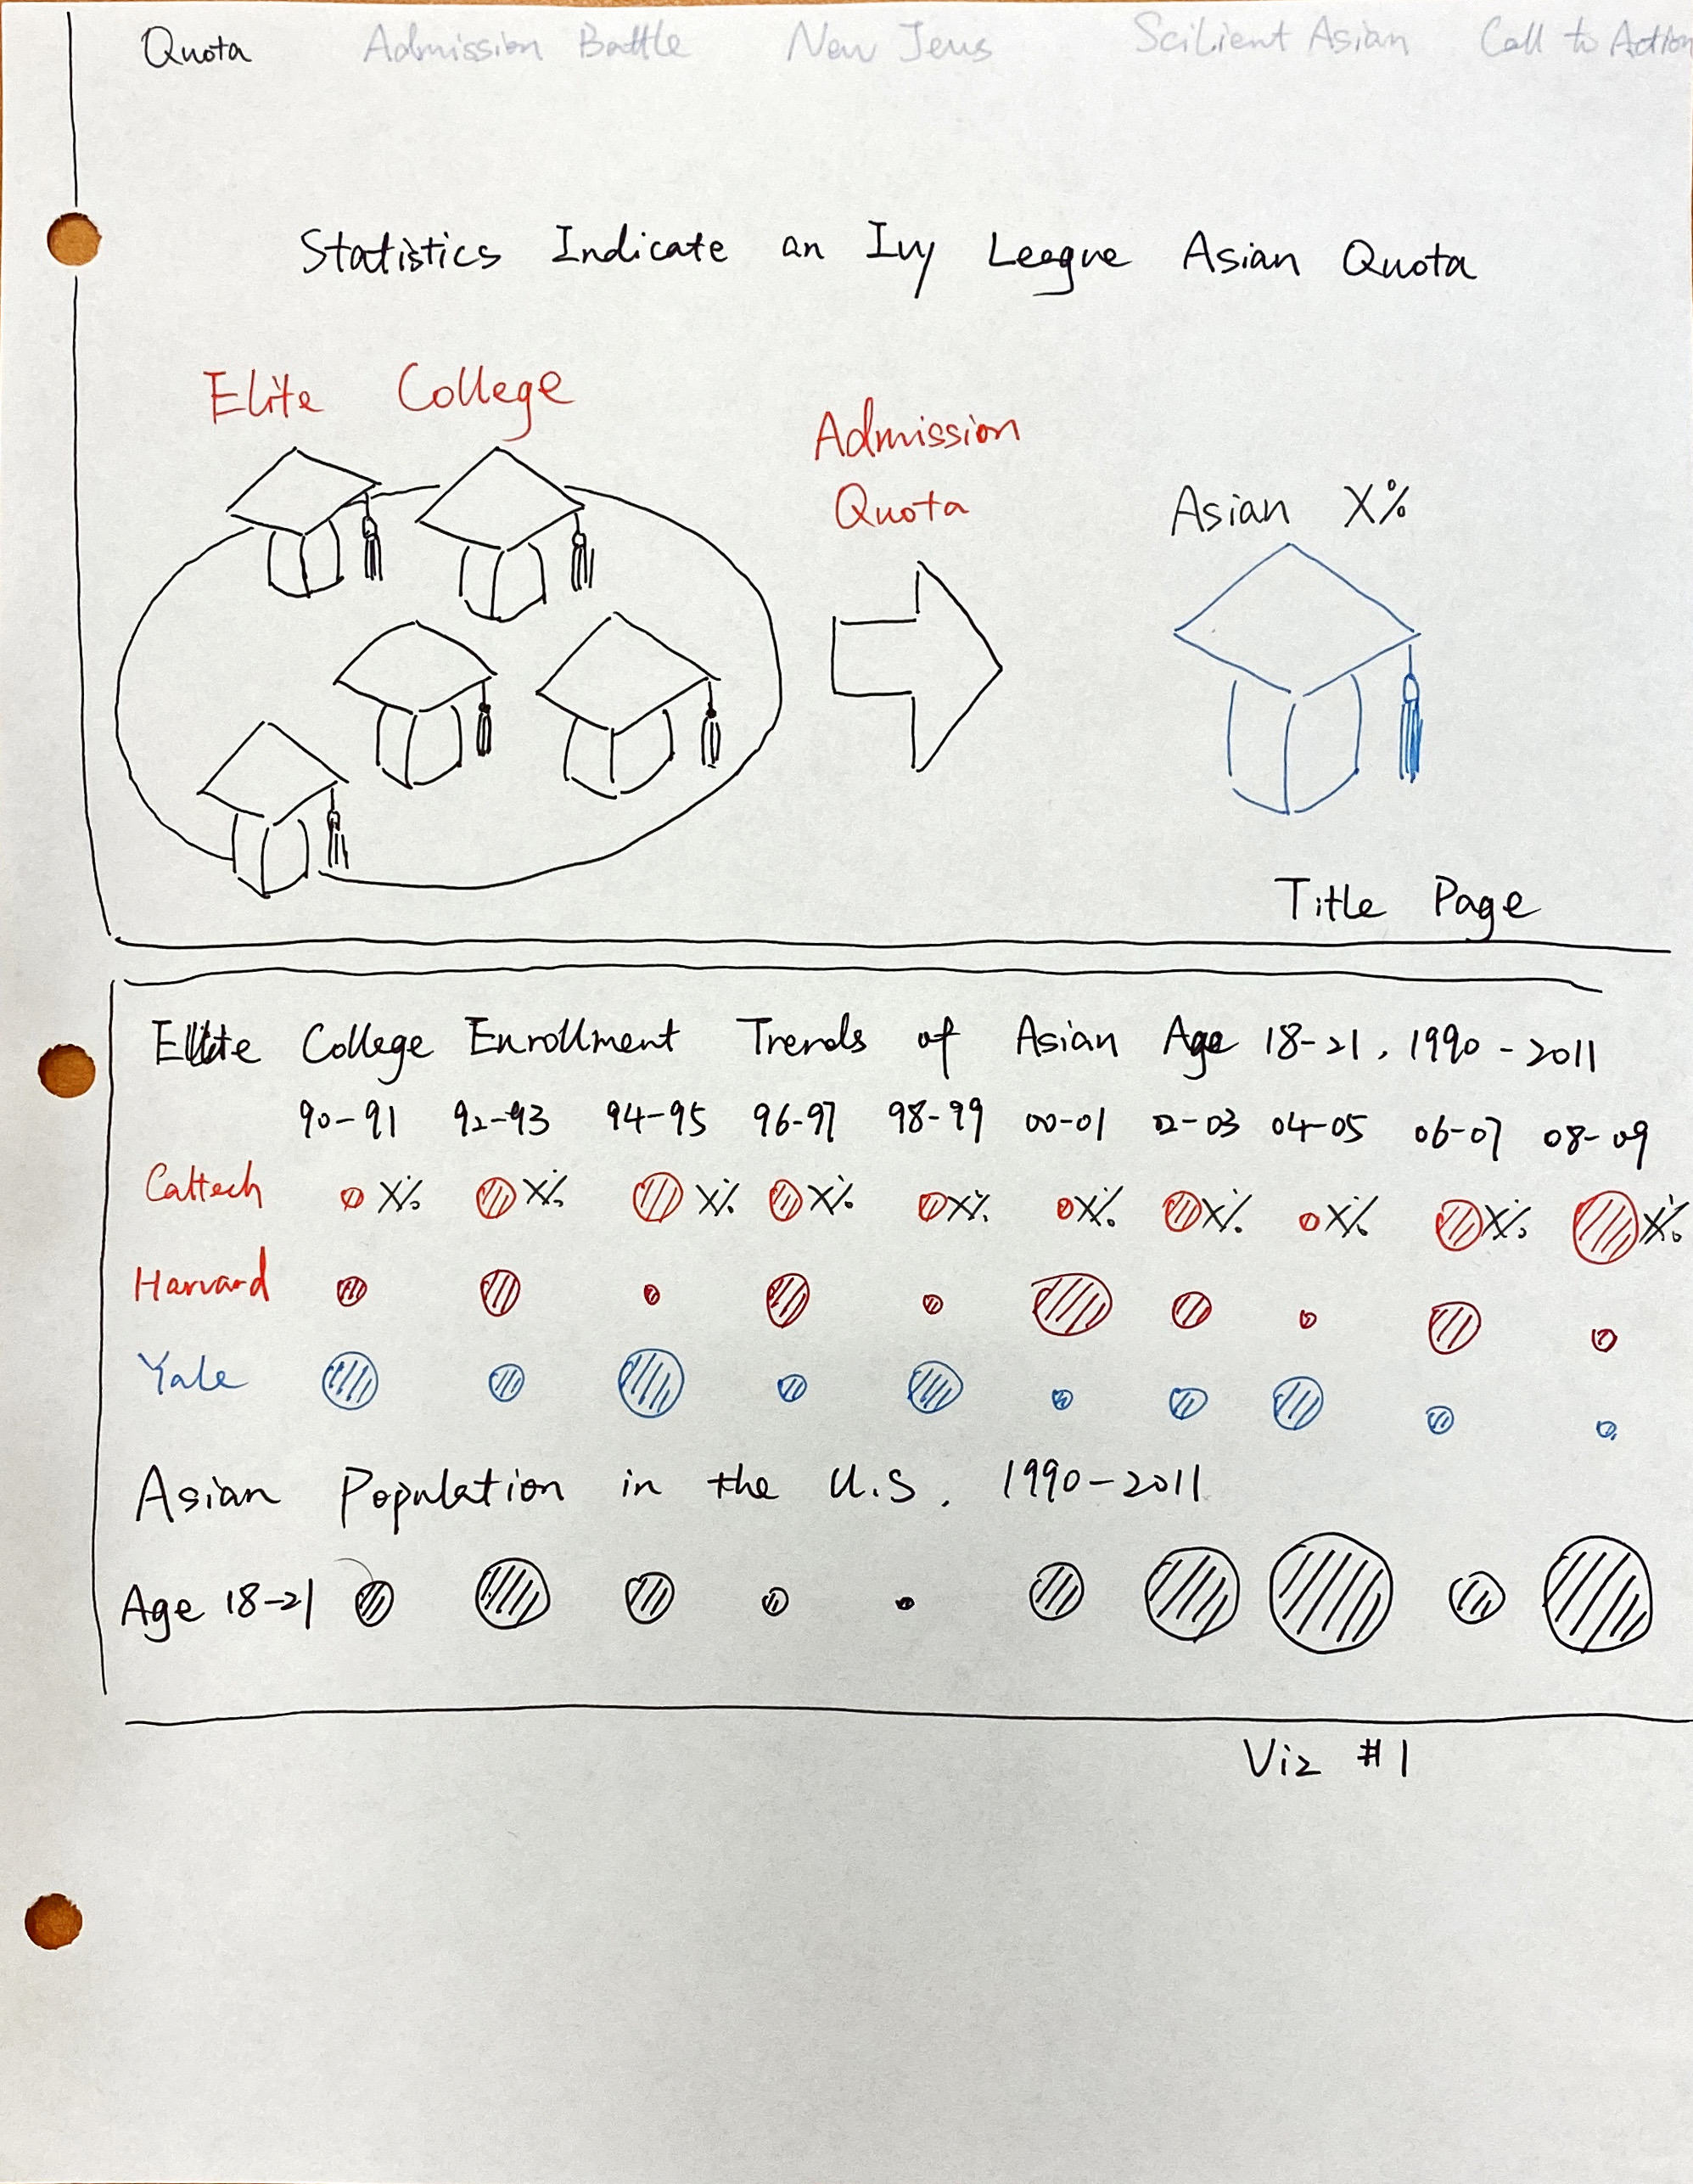 Quota Admission Battle New Jews Scilient Asian Call to Action
Statistics Indicate an Ivy League Asian Quota
Elite College
Admission
Quota
Asian X%
Title Page
Elite College Enrollment Trends of Asian Age 18-21, 1990-2011
90-91 92-93 94-95 96-97 98-99 00-01 02-03 04-05 06-07 08-09
Caltech X% X% X% X% X% X% X% X% X% X%
Harvard
Yale
Asian Population in the U.S. 1990-2011
Age 18-21
Viz #1